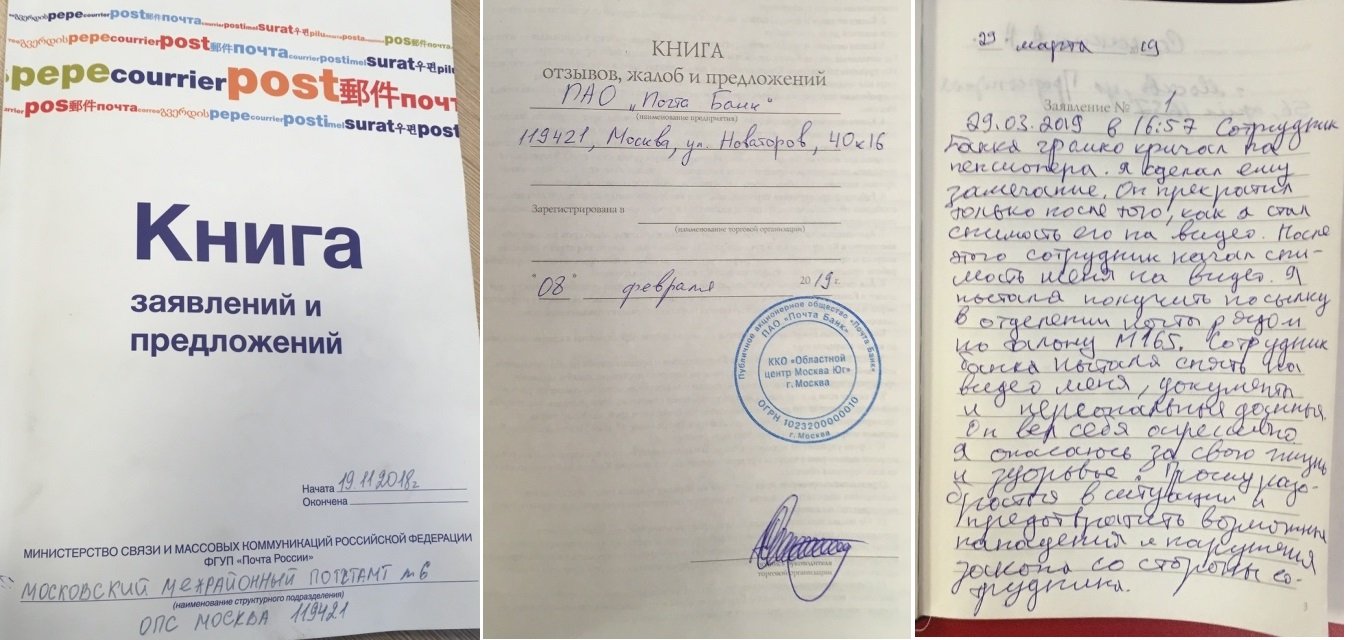 pepe courrier post 郵件 почта surat 우편
pepe courrier post 郵件 почта postimel surat 우편 pilu
pepe courrier post 郵件 почт
pos 郵件 почта გვერდის pepe courrier postimel surat 우편 post
Книга
заявлений и
предложений
Начата 19.11.2018г
Окончена
МИНИСТЕРСТВО СВЯЗИ И МАССОВЫХ КОММУНИКАЦИЙ РОССИЙСКОЙ ФЕДЕРАЦИИ
ФГУП «Почта России»
МОСКОВСКИЙ МЕЖРАЙОННЫЙ ПОЧТАМТ №6
(наименование структурного подразделения)
ОПС МОСКВА 119421
КНИГА
отзывов, жалоб и предложений
ПАО „Почта Банк"
(наименование предприятия)
119421, Москва, ул. Новаторов, 40к16
Зарегистрирована в
(наименование торговой организации)
"08" февраля 2019 г.
Публичное акционерное общество «Почта Банк»
ПАО «Почта Банк»
ККО «Областной
центр Москва Юг»
г. Москва
ОГРН 1023200000010
г. Москва
руководителя
торговой организации
29 марта 19
Заявление № 1
29.03.2019 в 16:57 Сотрудник
банка грамко кричал на
пенсионера. Я сделал ему
замечание. Он прекратил
только после того, как я стал
снимость его на видео. После
этого сотрудник начал сни-
мость меня на видео. Я
пытался получить посылку
в отделении почты рядом
по талону М165. Сотрудник
банка пытался снять на
видео меня, документы
и персональные данные
Он вел себя агрессивно
Я опасаюсь за свою жизнь
и здоровье. Прошу разо-
браться в ситуации и
предотвратить возможные
нападения и нарушения
закона со стороны со-
трудника.
3